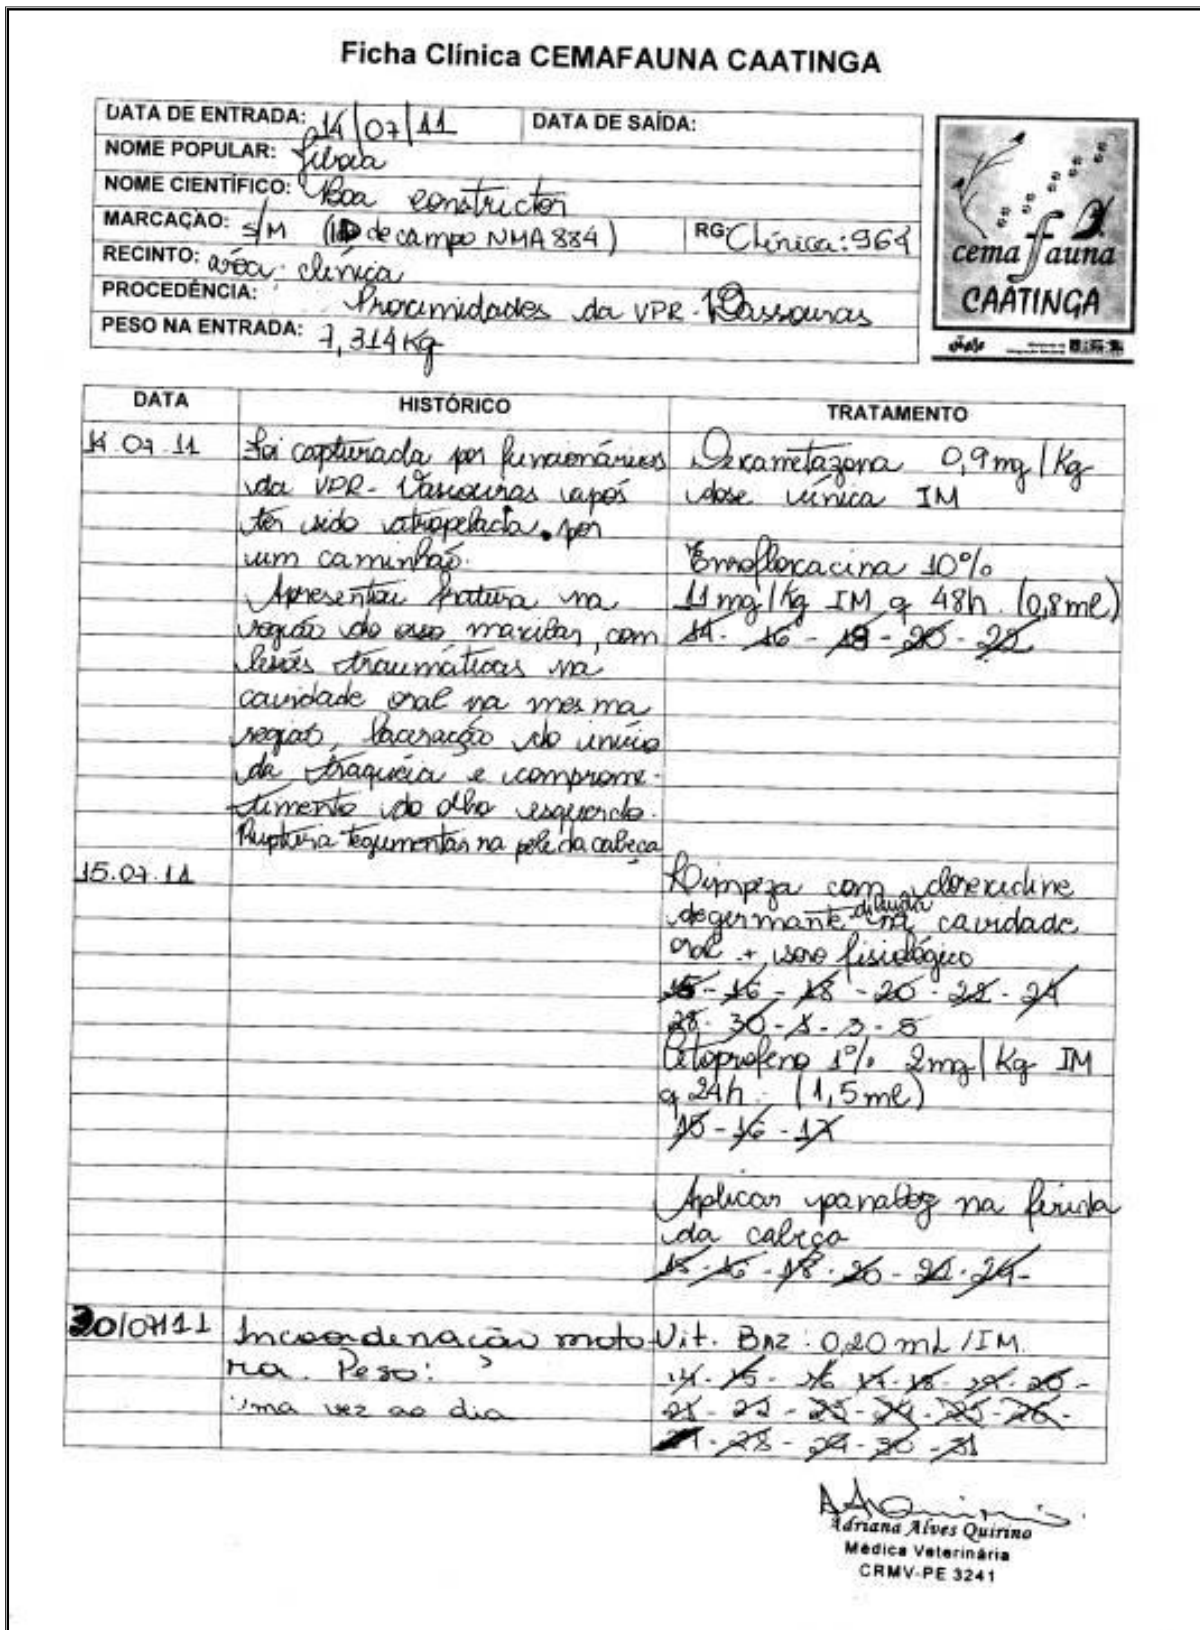 Ficha Clínica CEMAFAUNA CAATINGA
DATA DE ENTRADA: 14/07/11 DATA DE SAÍDA:
NOME POPULAR: Jiboia
NOME CIENTÍFICO: Boa constrictor
MARCAÇÃO: S/M (ID de campo NMA 884) RG: Clínica: 964
RECINTO: área clínica
PROCEDÊNCIA: Proximidades da VPR-Vassouras
PESO NA ENTRADA: 7,314 Kg
cema fauna
CAATINGA
DATA HISTÓRICO TRATAMENTO
14.07.11 Foi capturada por funcionários Dexametazona 0,9mg/Kg
da VPR-Vassouras após dose única IM
ter sido atropelada por
um caminhão. Enrofloxacina 10%
Apresentou fratura na 11mg/Kg IM q 48h. (0,8ml)
região do osso maxilar, com 14 - 16 - 18 - 20 - 22
lesões traumáticas na
cavidade oral na mesma
região, laceração do início
da traquéia e comprome-
timento do olho esquerdo.
Ruptura tegumentar na pele da cabeça
15.07.11 Limpeza com clorexidine
degermante diluída na cavidade
oral + soro fisiológico
15 - 16 - 18 - 20 - 22 - 24
28 - 30 - 1 - 3 - 5
Cetoprofeno 1% 2mg/Kg IM
q 24h. (1,5ml)
15 - 16 - 17
Aplicar panalog na ferida
da cabeça
15 - 16 - 18 - 20 - 22 - 24 -
20/07/11 Incoordenação moto Vit. B12: 0,20 mL/IM.
ra. Peso: ? 14 - 15 - 16 17 - 18 - 19 - 20 -
uma vez ao dia 21 - 22 - 23 - 24 - 25 - 26 -
27 - 28 - 29 - 30 - 31
Adriana Alves Quirino
Médica Veterinária
CRMV-PE 3241